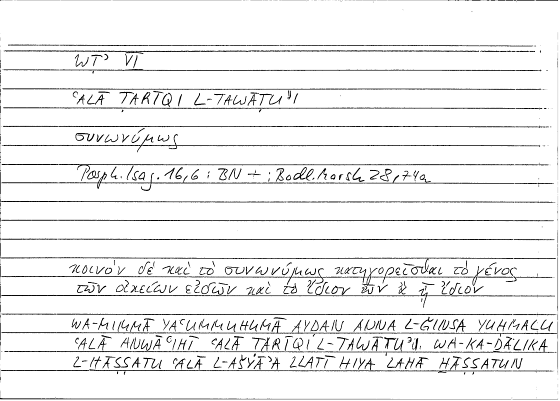 WṬʾ VI
ʿALĀ ṬARĪQI L-TAWĀṬUʾI
συνωνύμως
Porph. Isag. 16,6 : BN + ; Bodl. Marsh 28, 74a
κοινὸν δὲ καὶ τὸ συνωνύμως κατηγορεῖσθαι τὸ γένος
τῶν οἰκείων εἰδῶν καὶ τὸ ἴδιον ὧν ἂν ᾖ ἴδιον
WA-MIMMĀ YAʿUMMUHUMĀ AYḌAN ANNA L-ǦINSA YUḤMALU
ʿALĀ ANWĀʿIHĪ ʿALĀ ṬARĪQI L-TAWĀṬUʾI, WA-KA-ḎĀLIKA
L-ḪĀṢṢATU ʿALĀ L-AŠYĀʾA LLATĪ HIYA LAHĀ ḪĀṢṢATUN